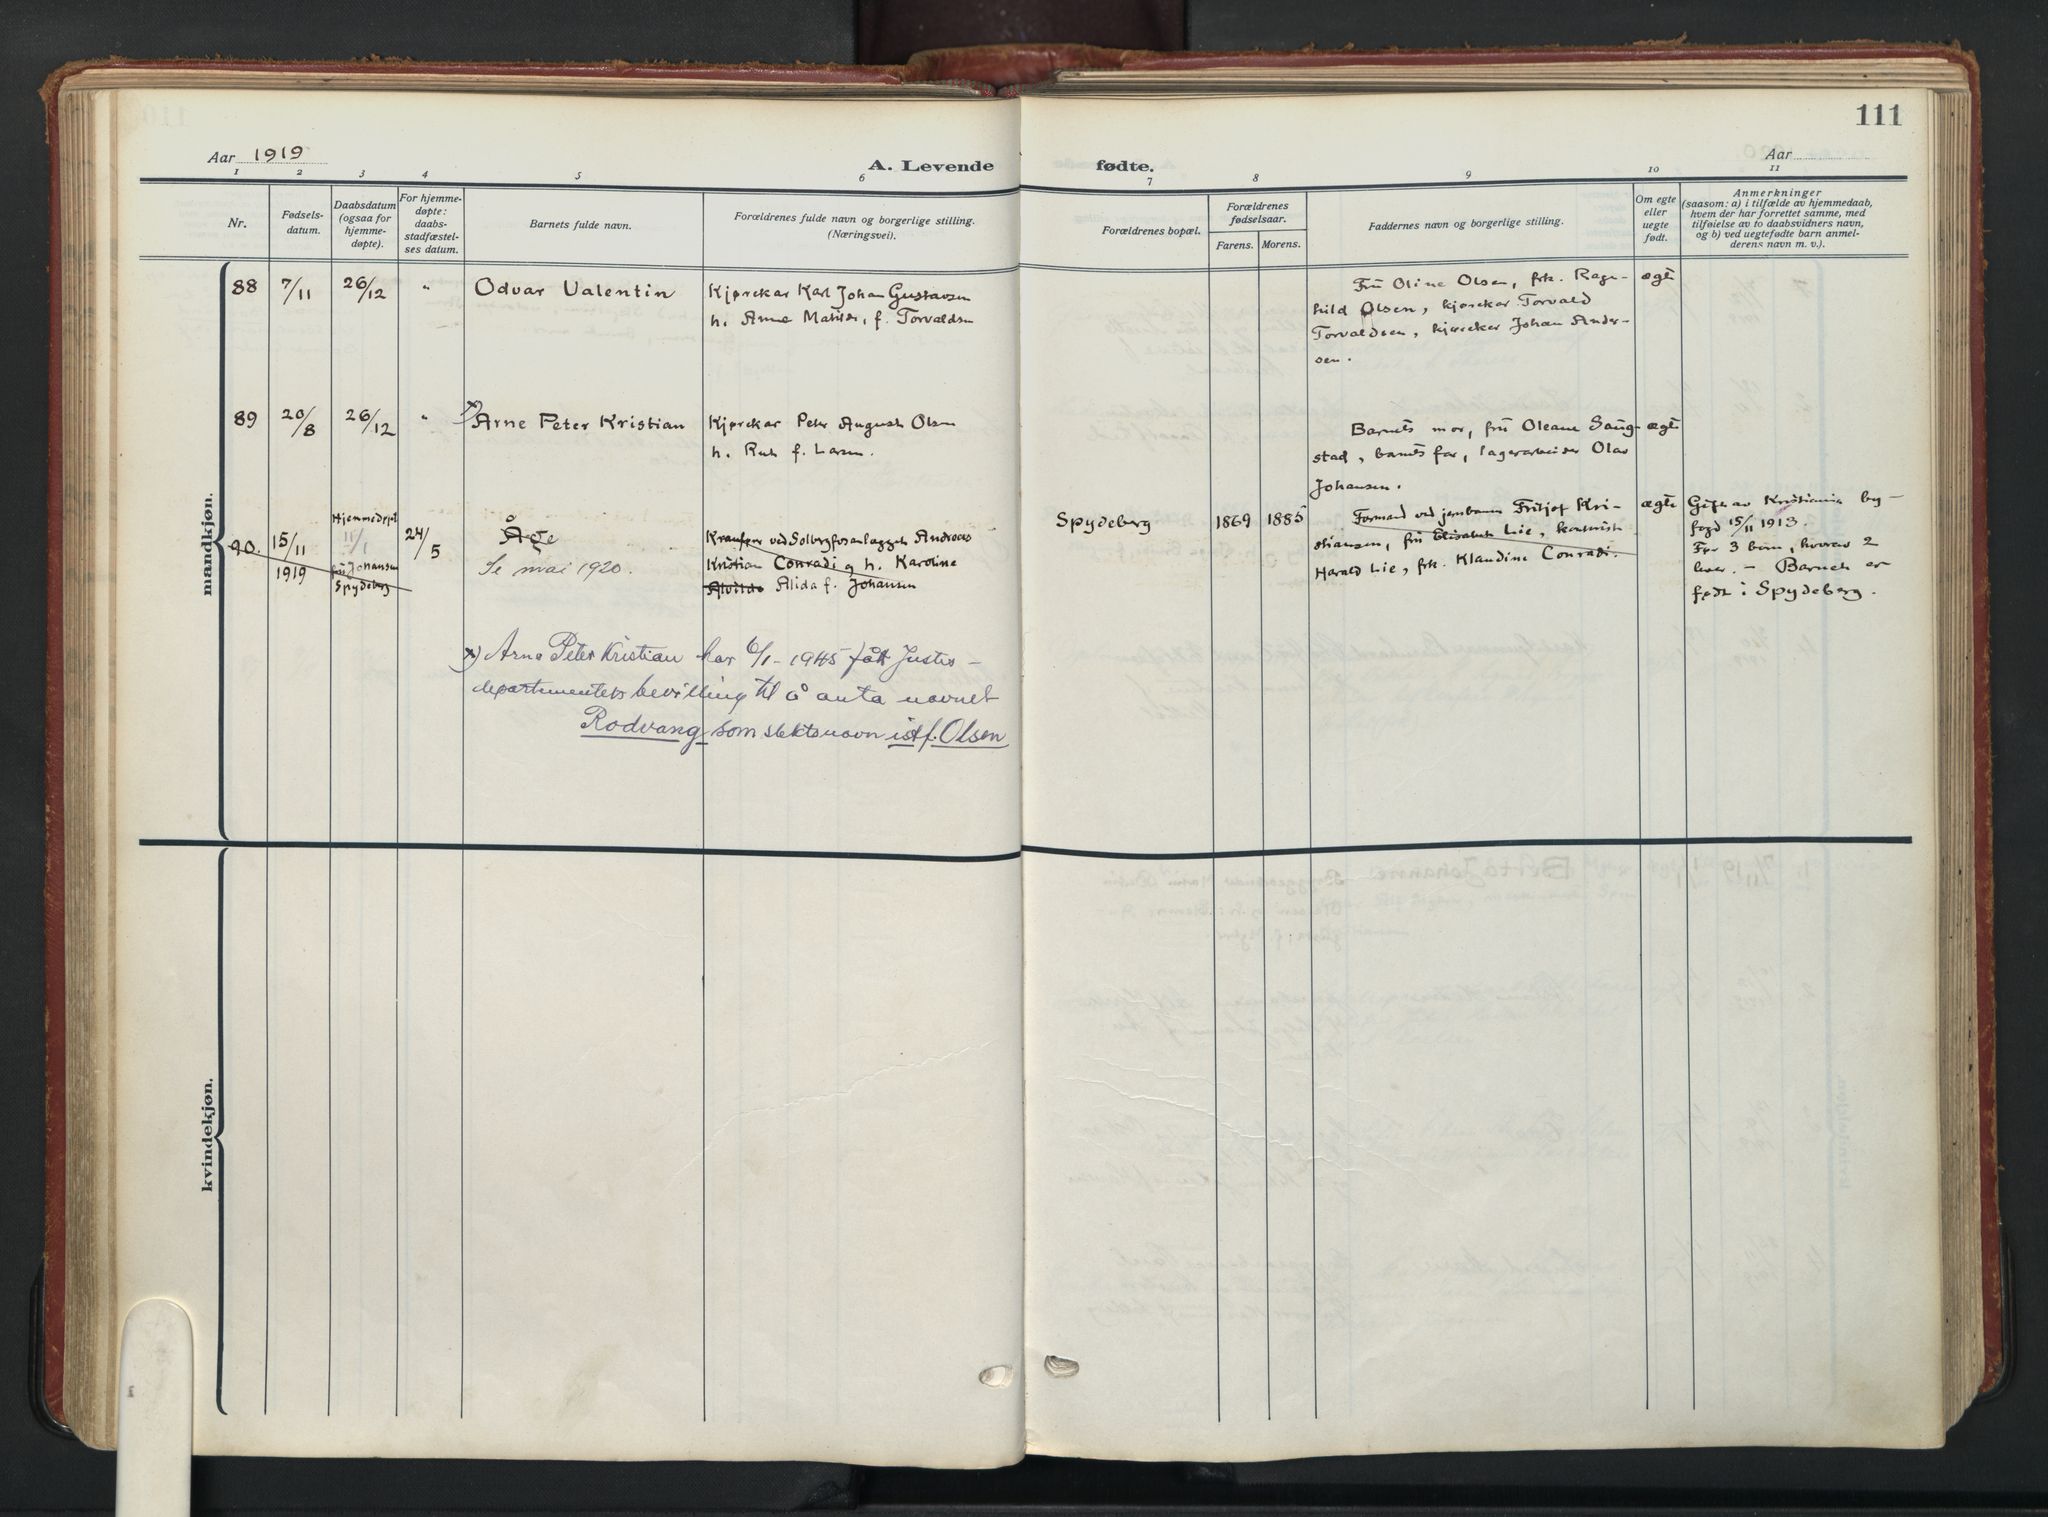 111
Aar 1919
A. Levende
fødte.
Aar
1
2
3
4
5
6
7
8
9
10
11
Nr.
Fødsels-
datum.
Daabsdatum
(ogsaa for
hjemme-
døpte).
For hjemme-
døpte:
daabs-
stadfæstel-
ses datum.
Barnets fulde navn.
Forældrenes fulde navn og borgerlige stilling.
(Næringsvei).
Forældrenes bopæl.
Forældrenes
fødselsaar.
Farens.
Morens.
Faddernes navn og borgerlige stilling.
Om egte
eller
uegte
født.
Anmerkninger
(saasom: a) i tilfælde av hjemmedaab,
hvem der har forrettet samme, med
tilføielse av to daabsvidners navn,
og b) ved uegtefødte barn anmel-
derens navn m. v.).
mandkjøn.
88
7/11
26/12
"
Odvar Valentin
Kjørekar Karl Johan Gustavsen
h. Anne Matilde, f. Torvaldsen
Frü Oline Olsen, frk. Ragn-
hild Olsen, kjørekar Torvald
Torvaldsen, kjøreker Johan Ander-
sen.
ægte
89
20/8
26/12
"
x) Arne Peter Kristian
Kjørekar Peter August Olsen
h. Rut f. Larsen.
Barnets mor, frü Oleane Saug-
stad, barnets far, lagerarbeider Olav
Johansen.
ægte
90.
15/11
1919
Hjemmedøpt
11/1
frü Johansen
Spydeberg
24/5
Åge
Se mai 1920.
ved Solbergfosanlægget Andreas
Kristian Conradi og h. Karoline
Alvilde Alida f. Johansen
Spydeberg
1869
1885
Formand ved jernbanen Fritjof Kri-
stiansen, frü Elisabeth Lie,
Harald Lie, frk. Klaudine Conradi.
ægte
Gift av Kristiania by-
fogd 15/11 1913.
Før 3 barn, hvorav 2
lever. - Barnet er
født i Spydeberg.
x) Arne Peter Kristian har 6/1-1945 fått Justis-
departementets bevilling til å anta navnet
Rodvang som slektsnavn istf. Olsen
kvindekjøn.